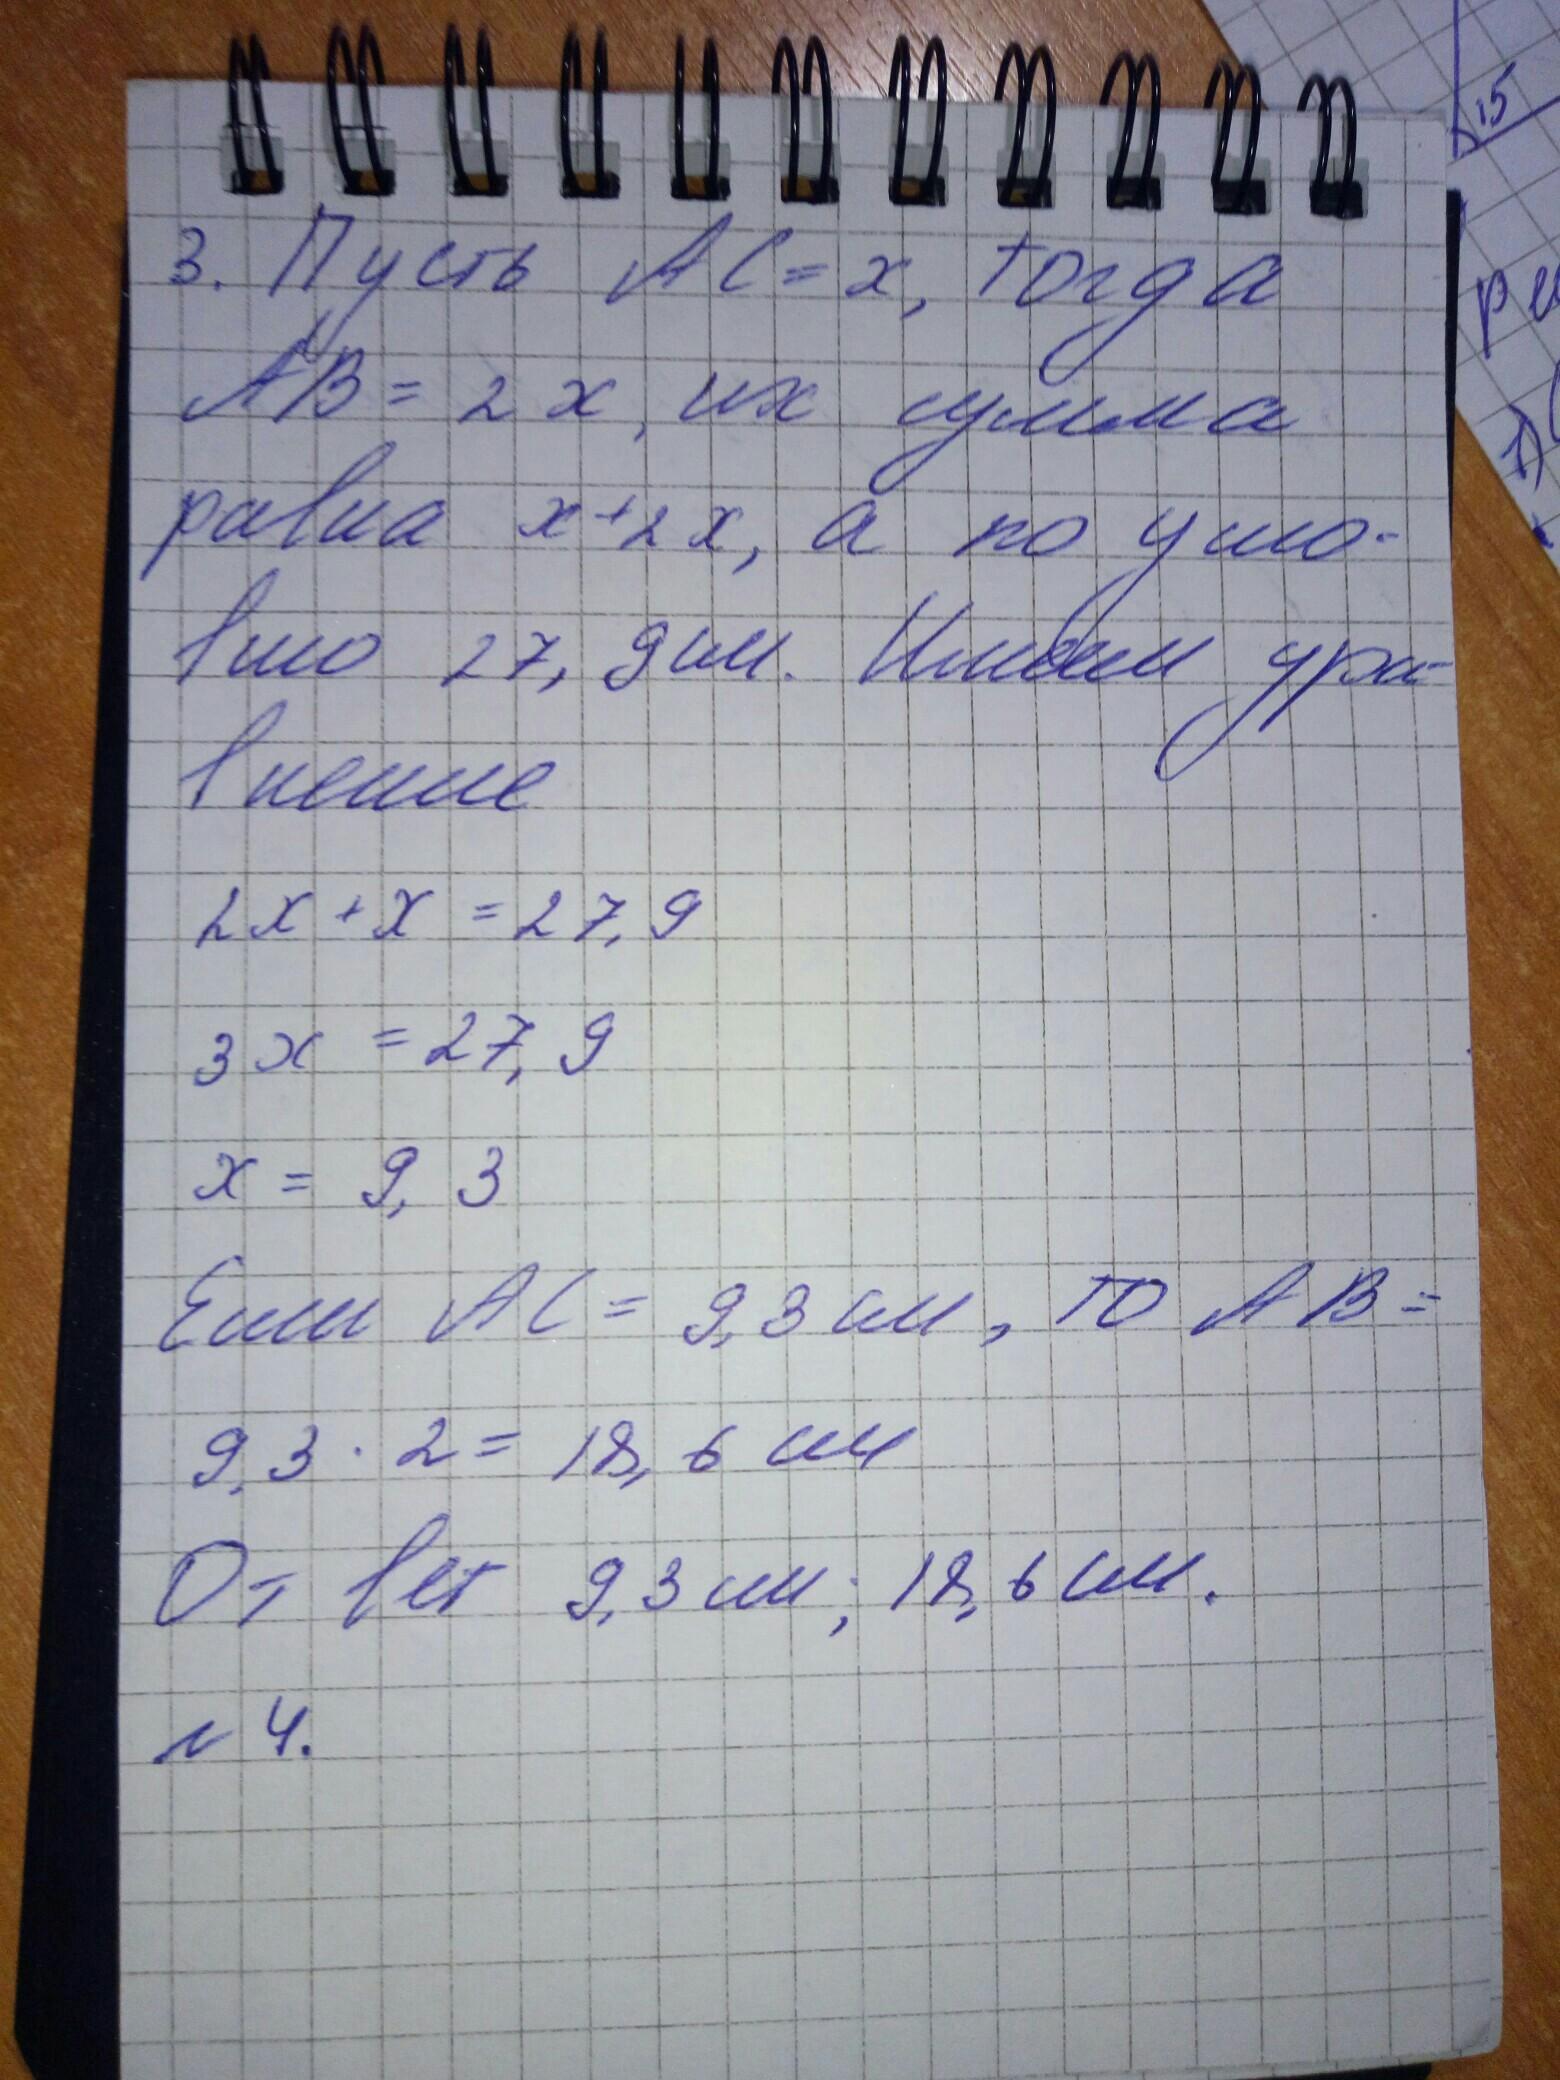 3. Пусть AC = x, тогда
AB = 2x, их сумма
равна x+2x, а по усло-
вию 27,9 см. Имеем ура-
внение
2x + x = 27,9
3x = 27,9
x = 9,3
Если AC = 9,3 см, то AB =
9,3 · 2 = 18,6 см
Ответ 9,3 см; 18,6 см.
N 4.
15